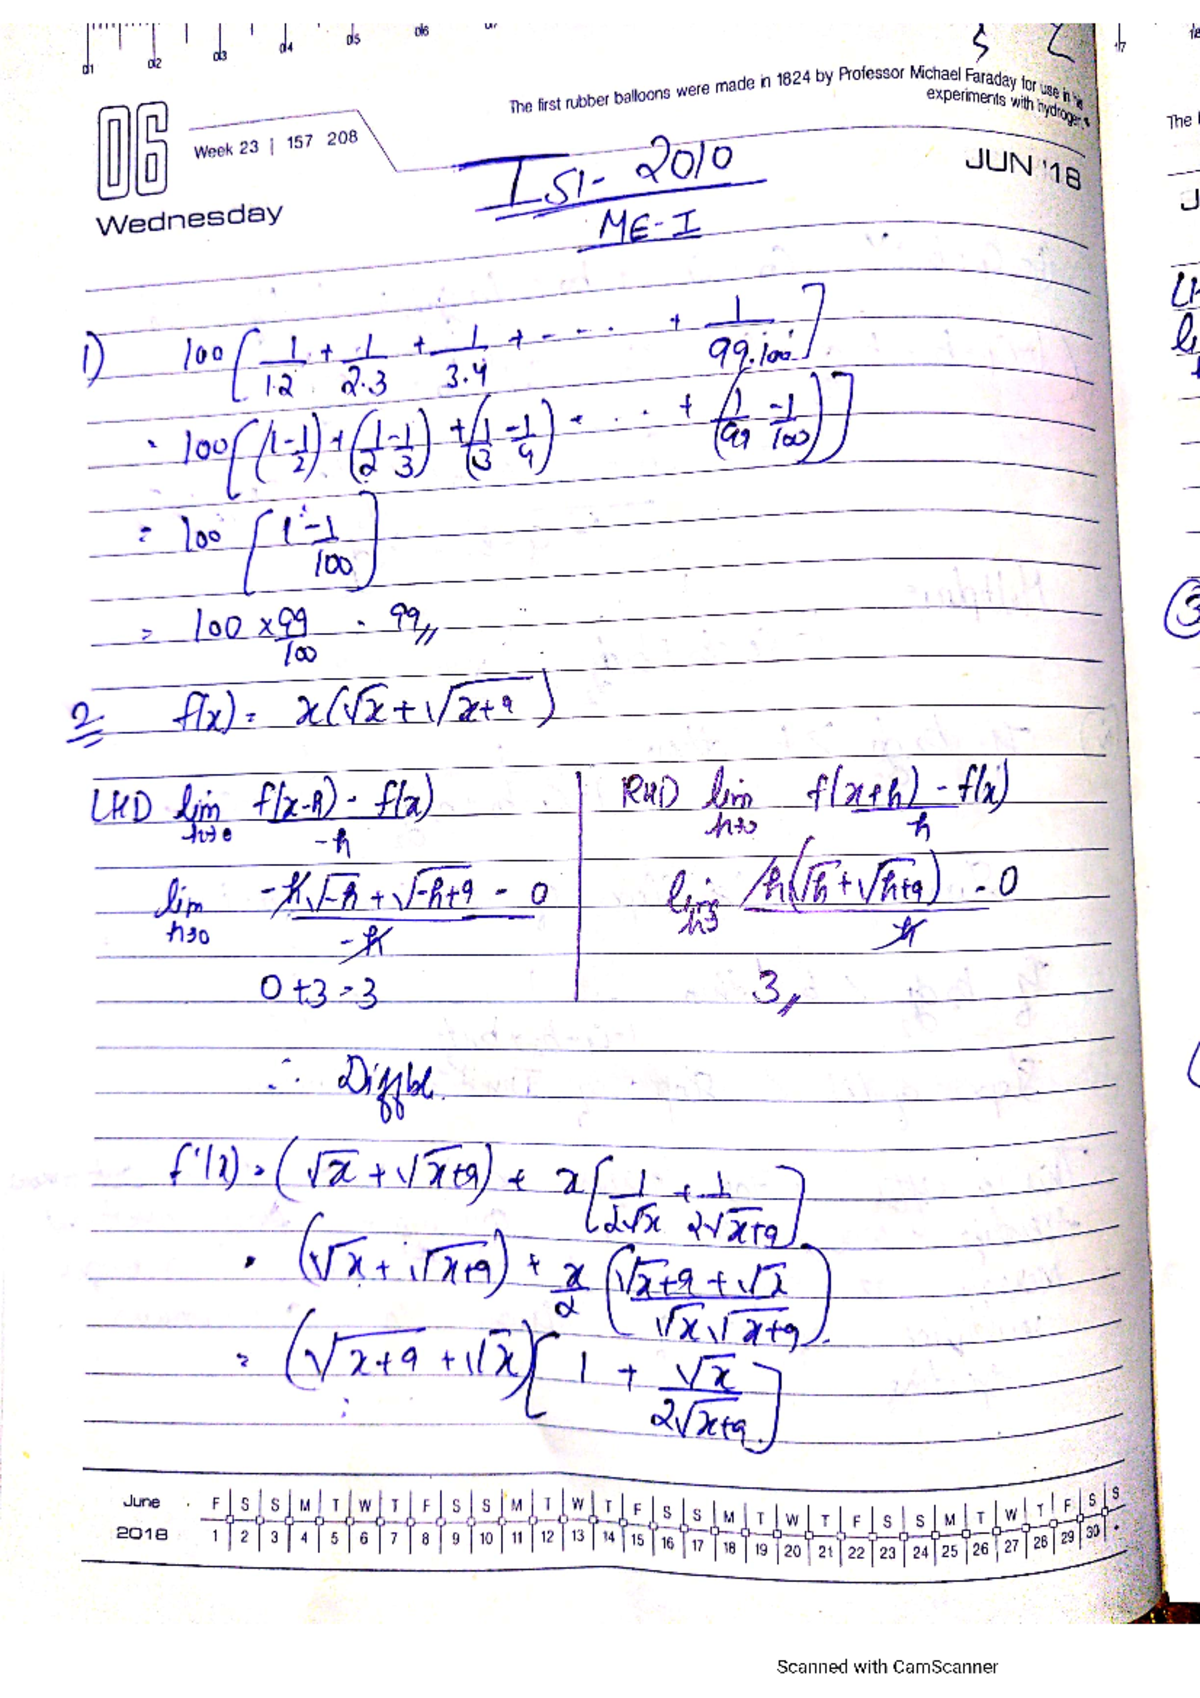 d1 d2 d3 d4 d5 d6
The first rubber balloons were made in 1824 by Professor Michael Faraday for use in his
experiments with hydrogen.
06
Week 23 | 157 208
JUN '18
Wednesday
ISI - 2010
ME-I
1) 100 [ 1/1.2 + 1/2.3 + 1/3.4 + - - - . + 1/99.100 ]
= 100 [ (1 - 1/2) + (1/2 - 1/3) + (1/3 - 1/4) - . . . + (1/99 - 1/100) ]
= 100 [ 1 - 1/100 ]
= 100 × 99/100 = 99
2 f(x) = x(√x + √x+9)
LHD lim h→0 f(x-h) - f(x) / -h
RHD lim h→0 f(x+h) - f(x) / h
lim h→0 -h√-h + √-h+9 - 0 / -h
lim h→0 h(√h + √h+9) - 0 / h
0 + 3 = 3
3
∴ Diffbl.
f'(x) = (√x + √x+9) + x [ 1/2√x + 1/2√x+9 ]
= (√x + √x+9) + x/2 ( √x+9 + √x / √x √x+9 )
= (√x+9 + √x) [ 1 + √x / 2√x+9 ]
June F S S M T W T F S S M T W T F S S M T W T F S S M T W T F S S
2018 1 2 3 4 5 6 7 8 9 10 11 12 13 14 15 16 17 18 19 20 21 22 23 24 25 26 27 28 29 30
The
3
Scanned with CamScanner